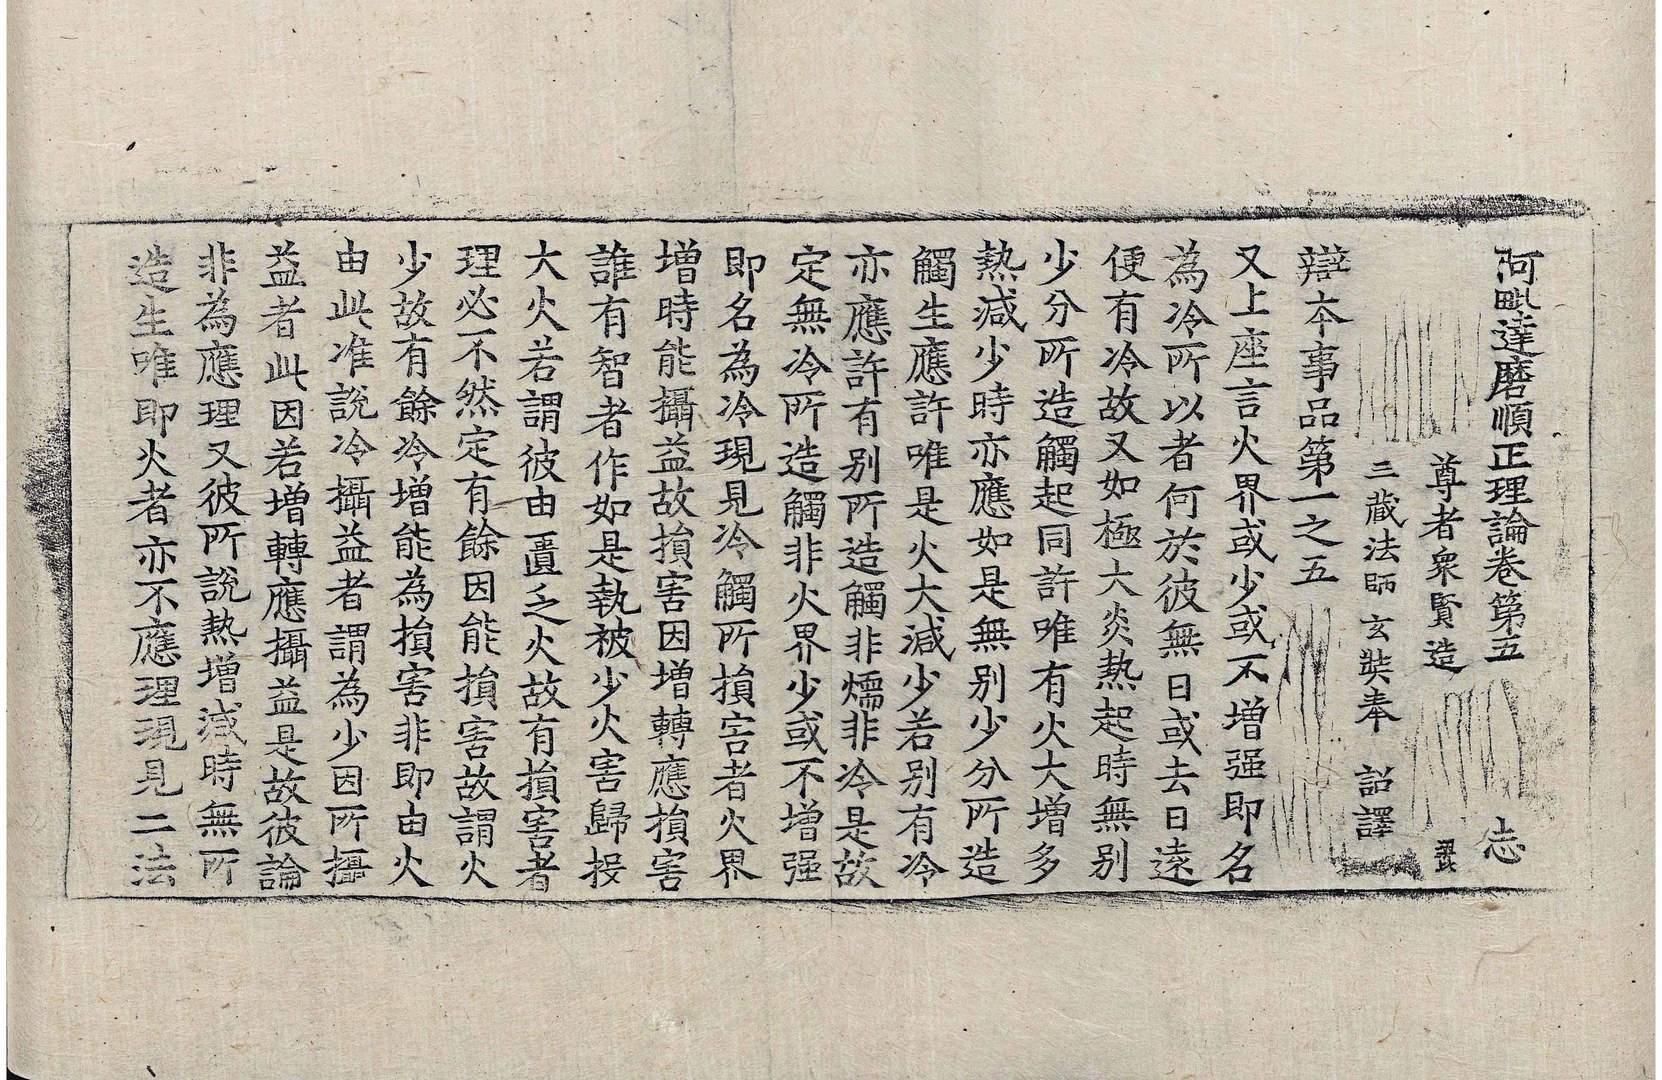 阿毗達磨順正理論卷第五 志
尊者衆賢造
三藏法師 玄奘奉 詔譯
辯本事品第一之五
又上座言火界或少或不增强即名
為冷所以者何於彼無日或去日遠
便有冷故又如極大炎熱起時無别
少分所造觸起同許唯有火大增多
熱減少時亦應如是無别少分所造
觸生應許唯是火大減少若别有冷
亦應許有别所造觸非煗非冷是故
定無冷所造觸非火界少或不增强
即名為冷現見冷觸所損害者火界
增時能攝益故損害因增轉應損害
誰有智者作如是執被少火害歸投
大火若謂彼由匱乏火故有損害者
理必不然定有餘因能損害故謂火
少故有餘冷增能為損害非即由火
由此准說冷攝益者謂為少因所攝
益者此因若增轉應攝益是故彼論
非為應理又彼所說熱增減時無所
造生唯即火者亦不應理現見二法